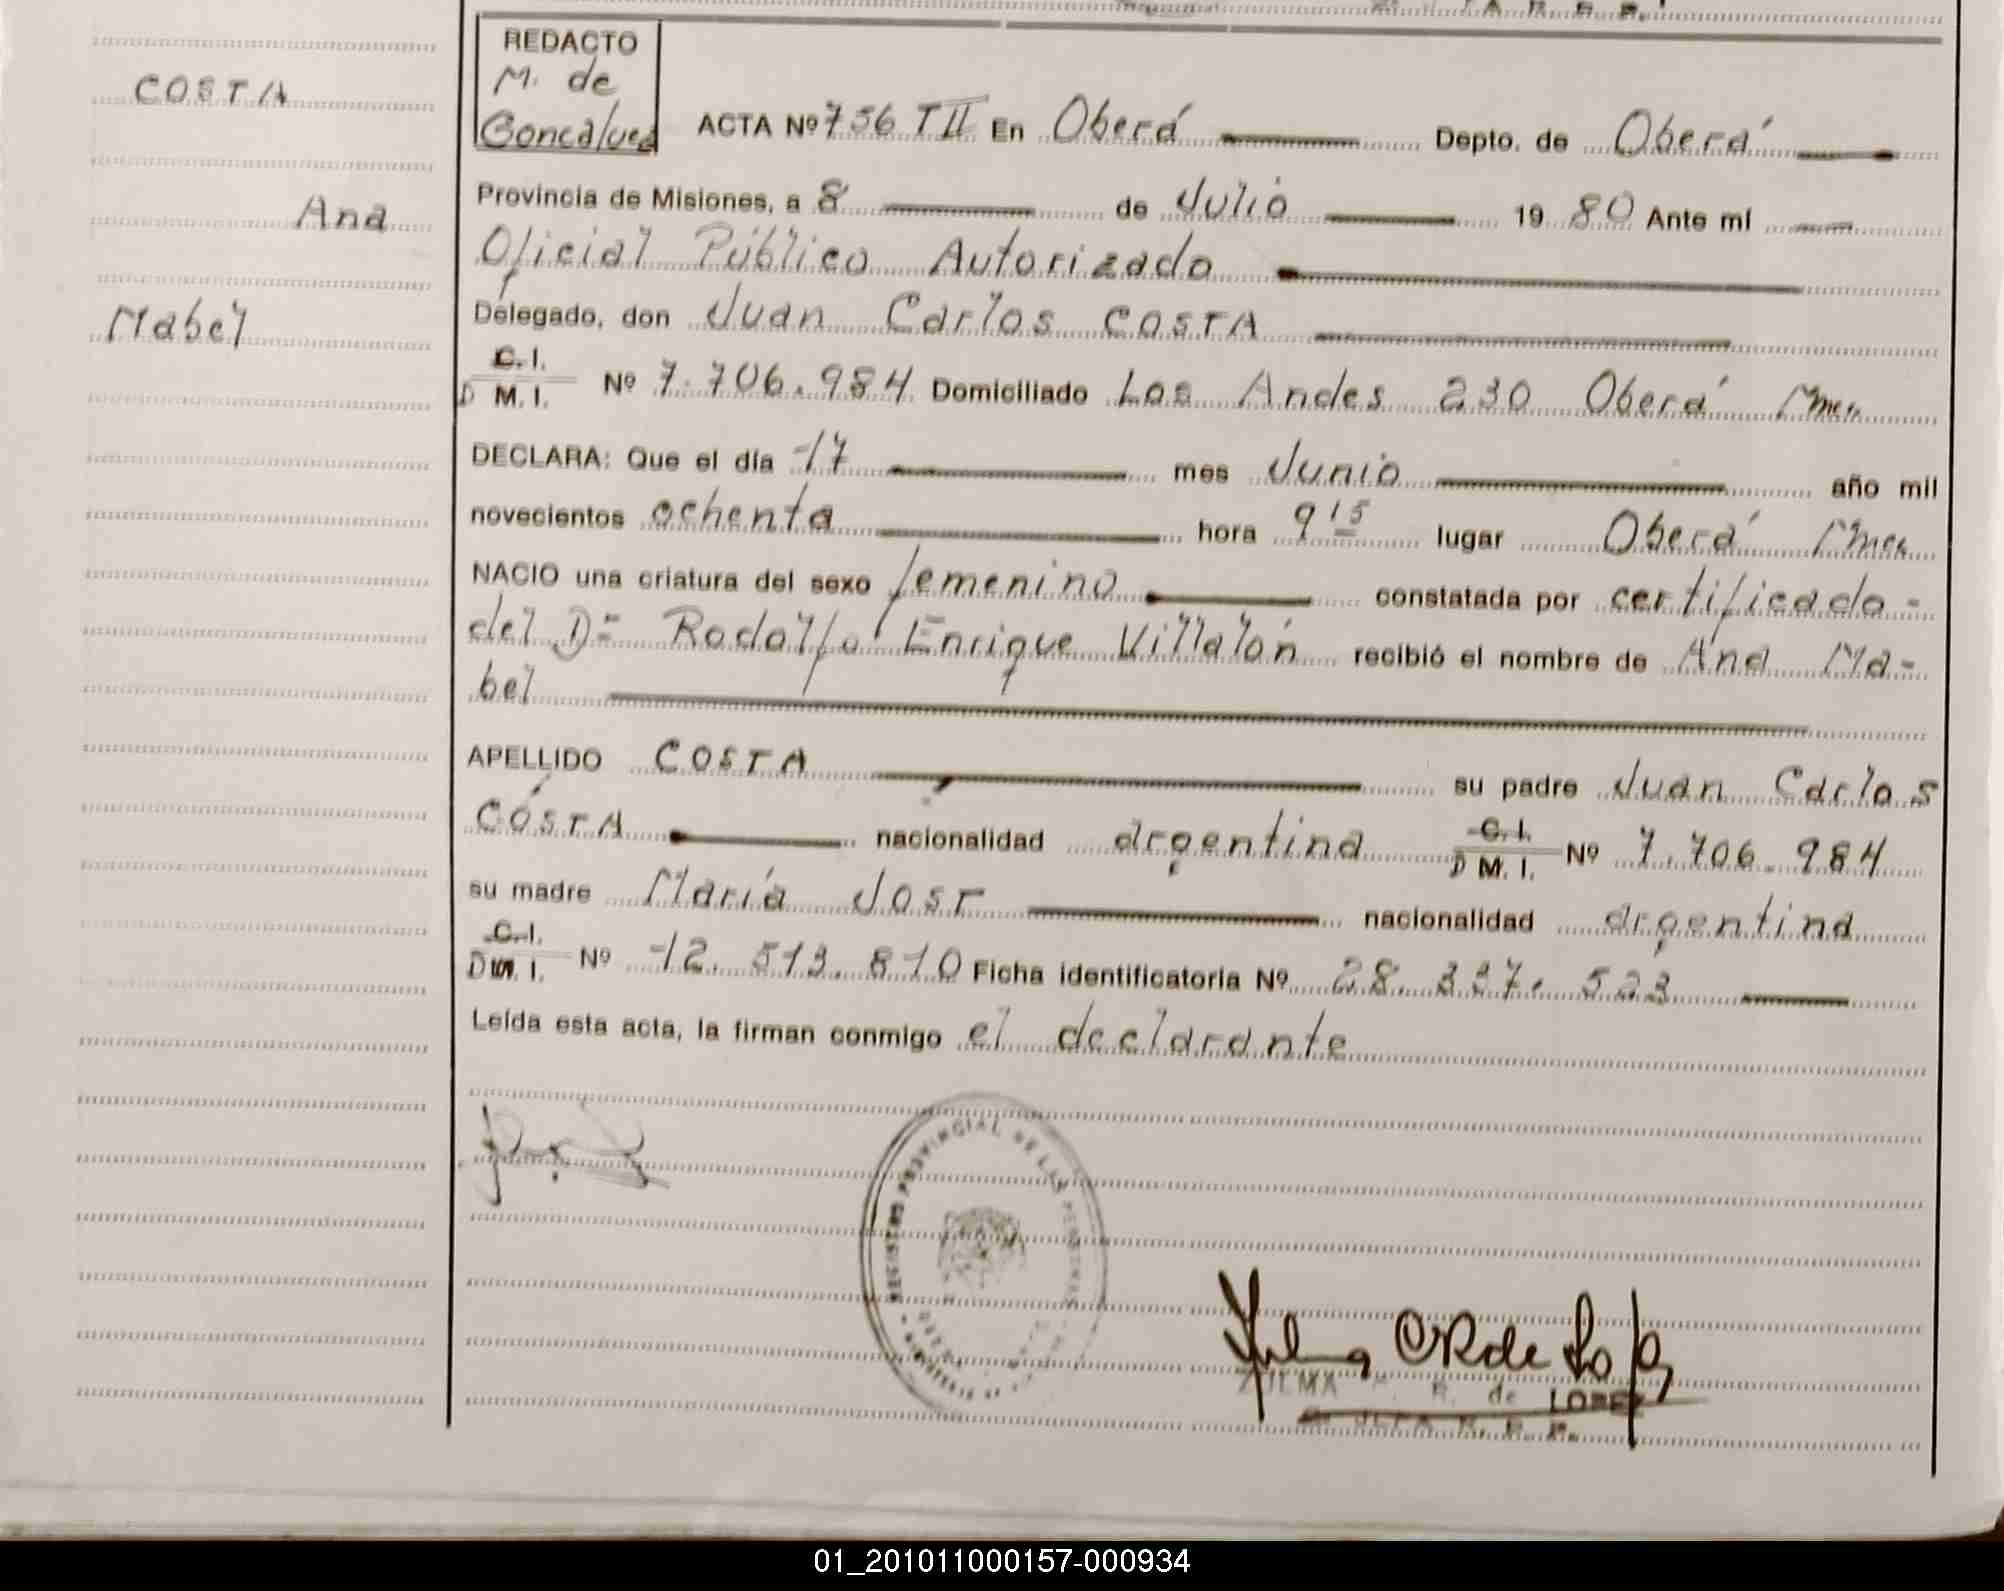 COSTA
Ana
Mabel
REDACTO
M. de
Goncalves
ACTA Nº 756 TII En Oberá Depto. de Oberá
Provincia de Misiones, a 8 de Julio 1980 Ante mí
Oficial Público Autorizado
Delegado, don Juan Carlos COSTA
C. I.
D M. I. Nº 7.706.984 Domiciliado Los Andes 230 Oberá Mnes
DECLARA: Que el día 17 mes Junio año mil
novecientos ochenta hora 9 15 lugar Oberá Mnes
NACIO una criatura del sexo femenino constatada por certificado
del Dr Rodolfo Enrique Villalón recibió el nombre de Ana Ma-
bel
APELLIDO COSTA su padre Juan Carlos
COSTA nacionalidad argentina C. I. D M. I. Nº 7.706.984
su madre María JOST nacionalidad argentina
C. I.
D M. I. Nº 12.513.810 Ficha identificatoria Nº 28.337.523
Leída esta acta, la firman conmigo el declarante
PROVINCIAL DE LAS PERSONAS
ZULMA R. de LOPEZ
01_201011000157-000934